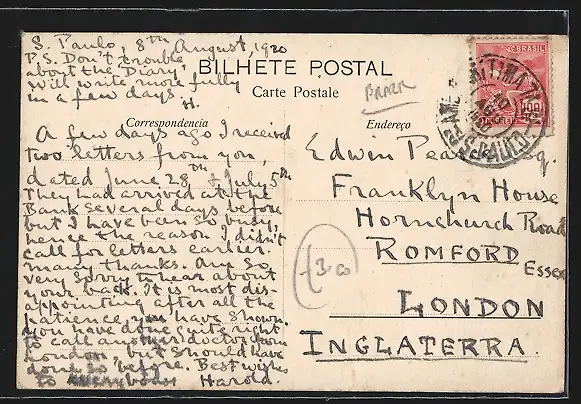 S. Paulo, 8th August, 1920
P.S. Don't trouble
about the 'Diary',
will write more fully
in a few days.
H.
BILHETE POSTAL
Carte Postale
BRAZIL
Correspondencia
Endereço
A few days ago I received
two letters from you,
dated June 28th & July 5th
They had arrived at the
Bank several days before
but I have been so busy,
hence the reason I didn't
call for letters earlier.
many thanks. Am so
very sorry to hear about
your back. It is most dis-
appointing after all the
patience you have shown.
You have done quite right
to call another doctor from
London but should have
done so before. Best wishes
to everybody Harold.
Edwin Esq.
Franklyn House
Hornchurch Road
ROMFORD
Essex
LONDON
INGLATERRA.
BRASIL
100
S. PAULO